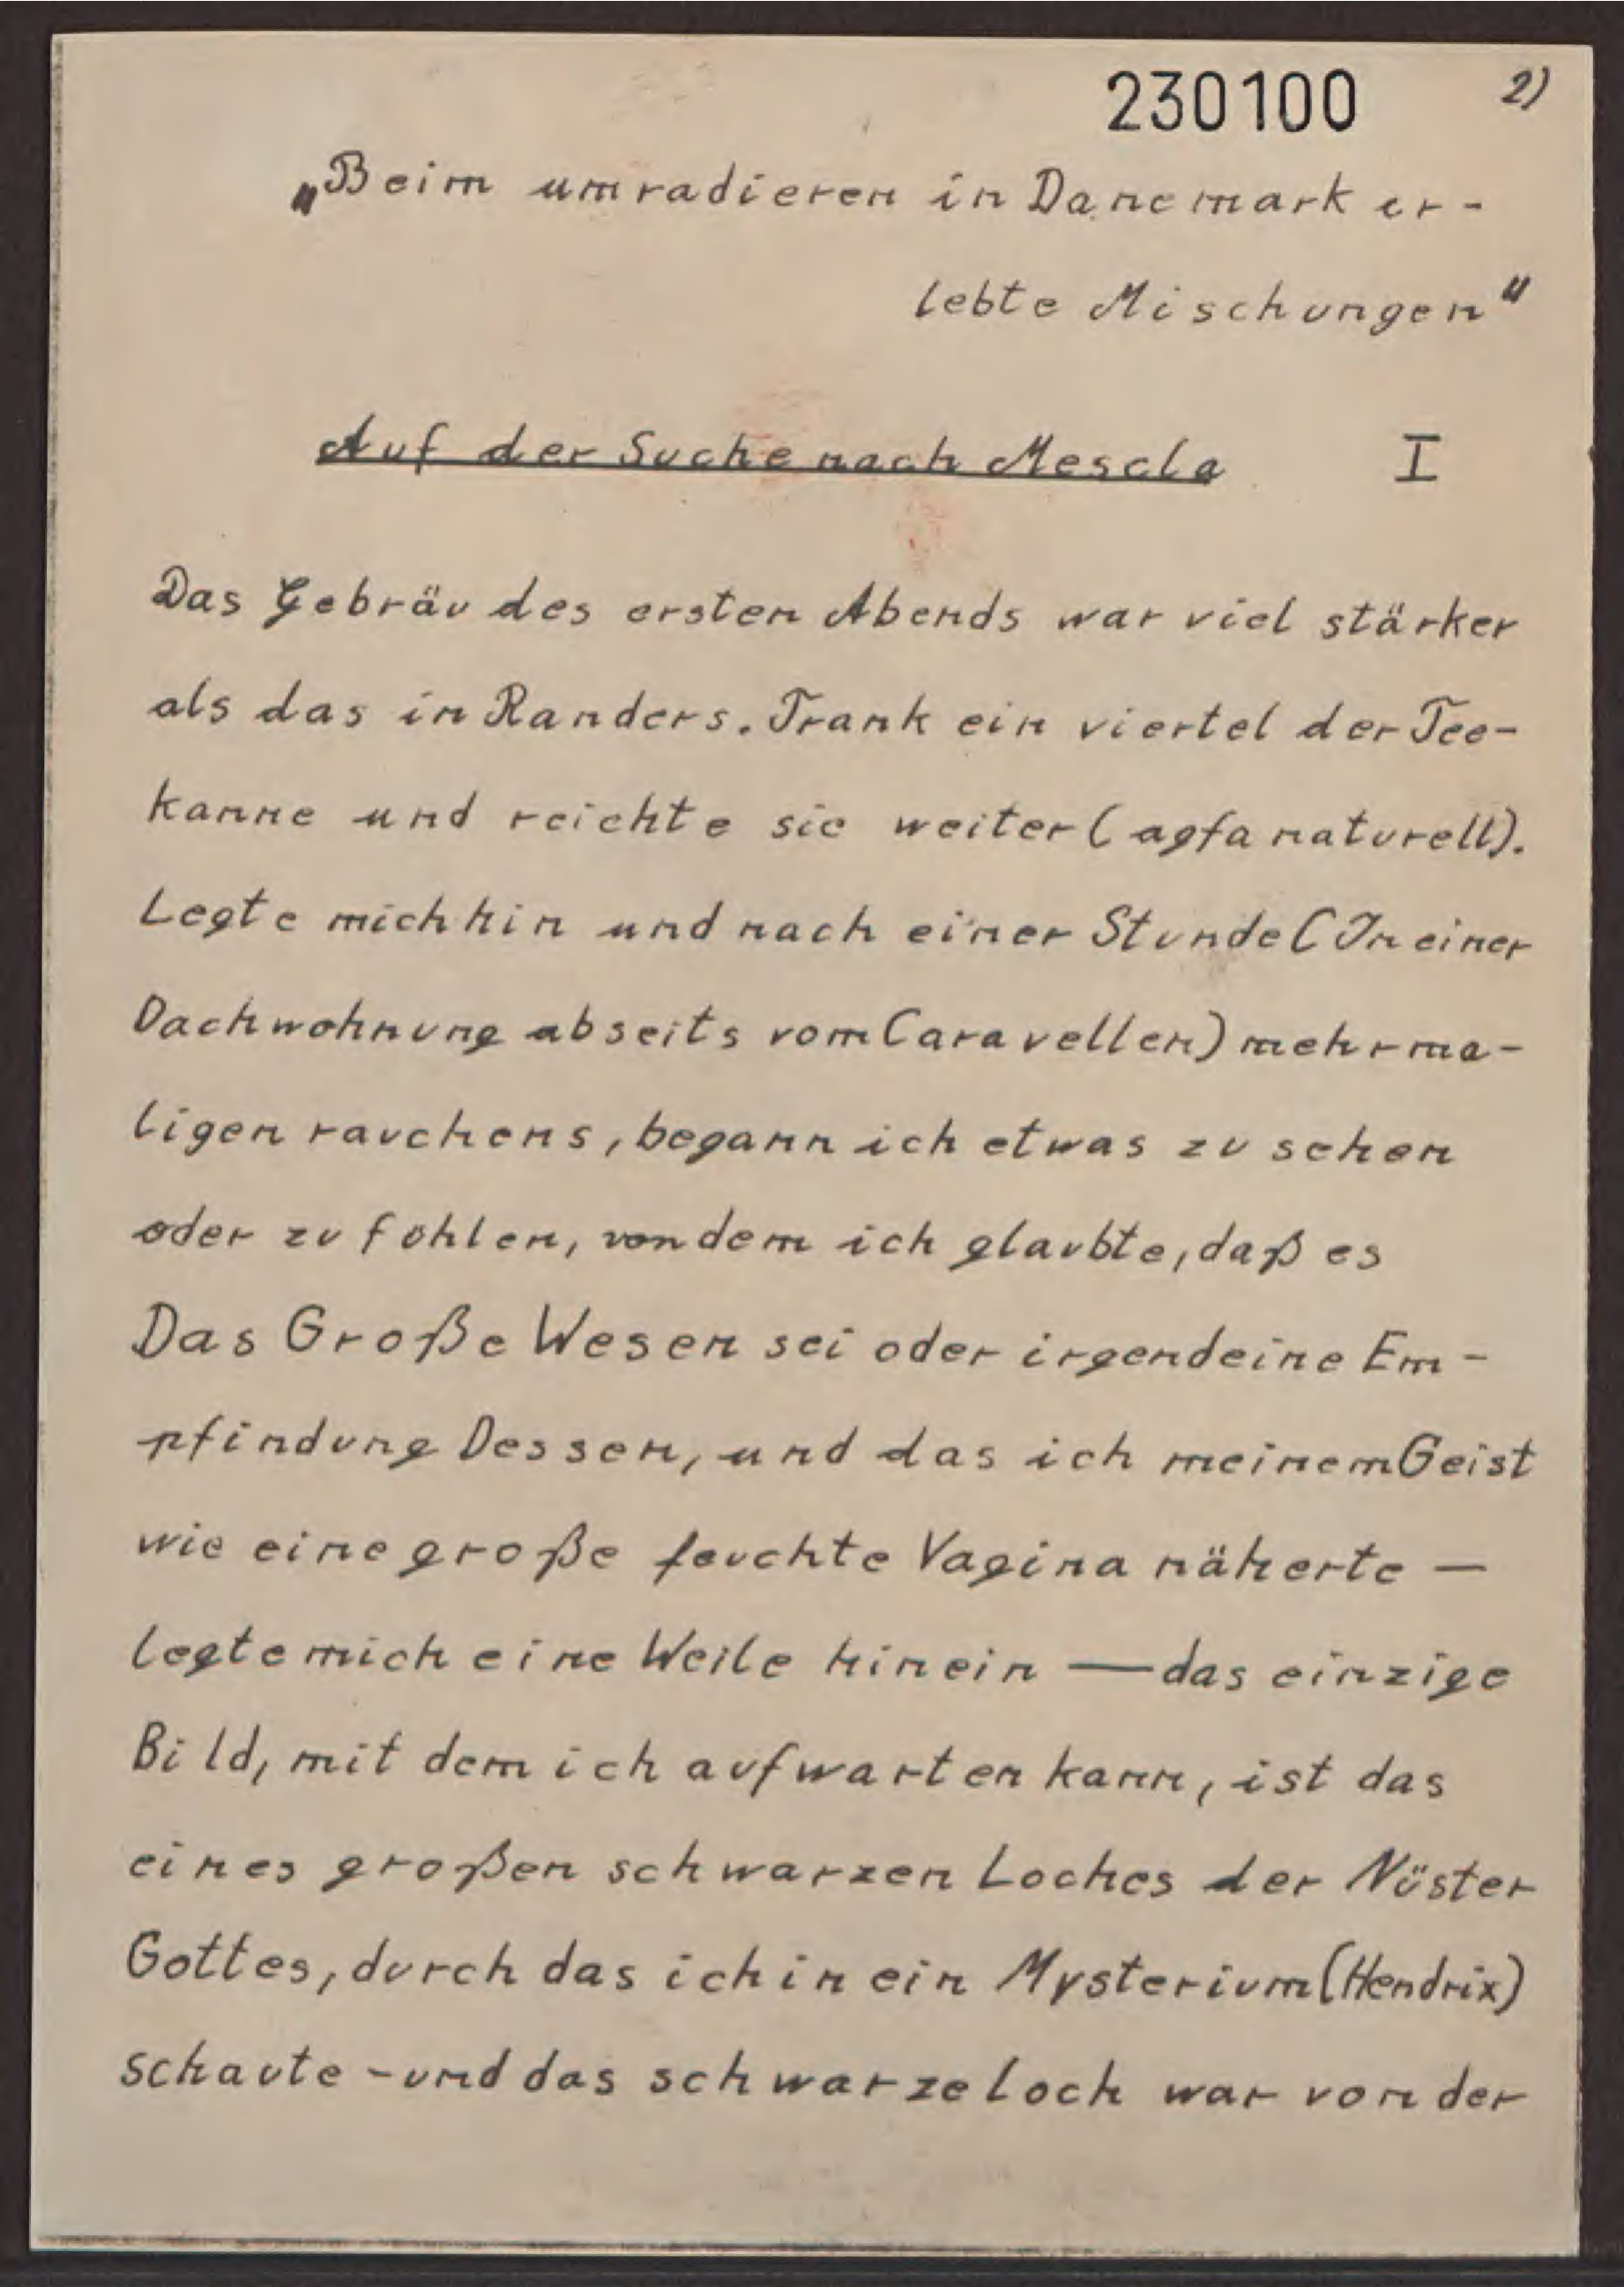 230100 2)
„Beim umradieren in Danemark er-
lebte Mischungen"
Auf der Suche nach Mescla I
Das Gebräu des ersten Abends war viel stärker
als das in Randers. Trank ein viertel der Tee-
kanne und reichte sie weiter (agfa naturell).
Legte mich hin und nach einer Stunde (In einer
Dachwohnung abseits vom Caravellen) mehrma-
ligen rauchens, begann ich etwas zu sehen
oder zu fühlen, von dem ich glaubte, daß es
Das Große Wesen sei oder irgendeine Em-
pfindung Dessen, und das ich meinem Geist
wie eine große feuchte Vagina näherte —
legte mich eine Weile hinein — das einzige
Bild, mit dem ich aufwarten kann, ist das
eines großen schwarzen Loches der Nüster
Gottes, durch das ich in ein Mysterium (Hendrix)
schaute - und das schwarze Loch war von der